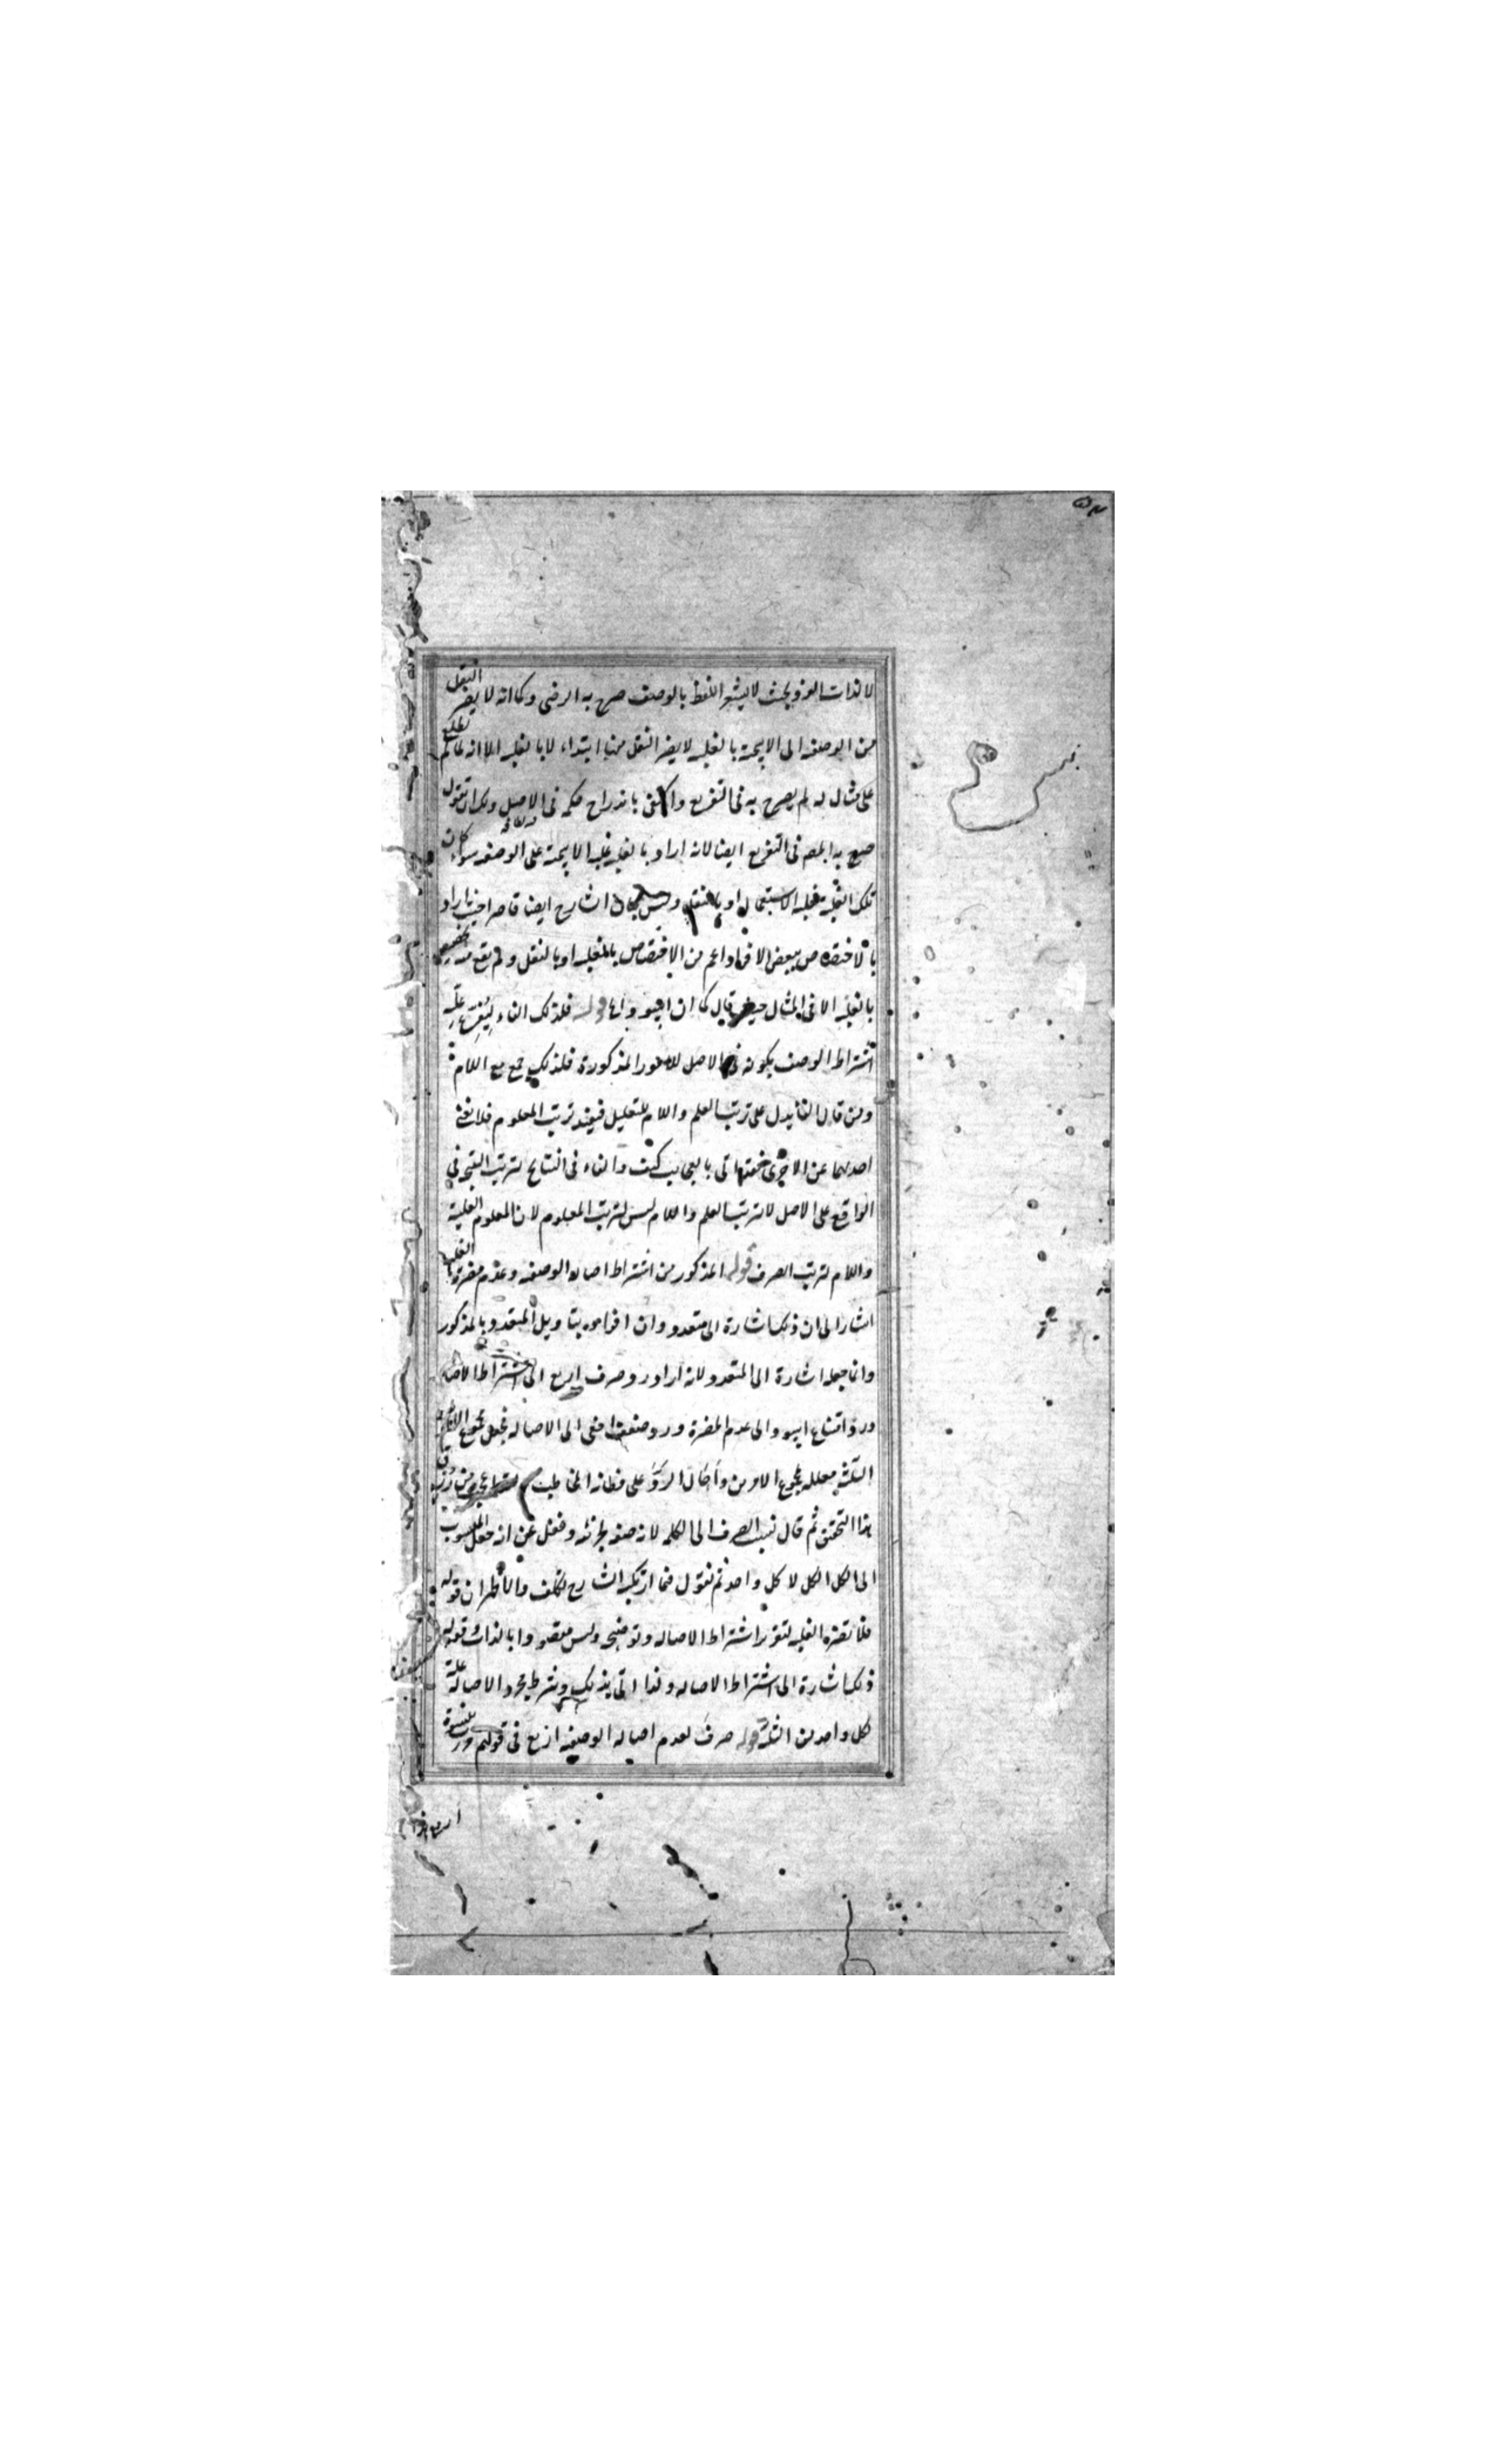 لا لذات الفرد بحيث لا يشعر اللفظ بالوصف صرح به الرضى وكما انه لا يضر النقل
من الوصفية الى الاسمية بالغلبة لا يضر النقل منها ابتداء لا بالغلبة الا انه لما لم يطلع
على مثال له لم يصرح به فى التفريع واكتفى باندراج حكمه فى الاصل ولك ان تقول
صرح به المص فى التفريع ايضا لانه اراد بالغلبة غلبة الاسمية على الوصفية سواء كان
تلك الغلبة بغلبة الاستعمال او بالنقل وليس بيان الشارح ايضا قاصرا حيث اراد
بالاختصاص ببعض الافراد اعم من الاختصاص بالغلبة او بالنقل ولم يقع منه
بالغلبة الا فى المثال حيث قال كما ان اسود وانما قوله فلذلك الفاء ليتفرع عليه
اشتراط الوصف بكونه فى الاصل للامور المذكورة فلذلك جمع مع اللام
ومن قال الفاء يدل على ترتب العلم واللام للتعليل فيفيد ترتب المعلوم فلا يغنى
احديهما عن الاخرى اتى بالعجايب كيف والفاء فى النتايج لترتب النتيجة فى
الواقع على الاصل لا ترتب العلم واللام ليس لترتب المعلوم لان المعلوم العلية
واللام لترتب الصرف قوله المذكور من اشتراط اصالة الوصفية وعدم مضرة الغلبة
اشار الى ان ذلك اشارة الى متعدد وان افراده بتاويل المتعدد بالمذكور
وانما جعله اشارة الى المتعدد لانه اراد رد صرف اربع الى اشتراط الاصالة
ورد امتناع اسود الى عدم المضرة ورد ضعف افعى الى الاصالة فجعل مجموع
الثلثة معللة بمجموع الامرين واحال الرد على فطانة المخاطب
هذا التحقيق ثم قال نسب الصرف الى الكلمة لانه صفة لجزئه وغفل عن انه جعل المنسوب
الى الكل الكل لا كل واحد ثم نقول فيما ارتكبه الشارح تكلف والاظهر ان قوله
فلا تضره الغلبة لتقرير اشتراط الاصالة وتوضيحه وليس مقصودا بالذات وقوله
ذلك اشارة الى اشتراط الاصالة ولذا اتى بذلك وشرط مجرد الاصالة علة
كل واحد من الثلثة قوله صرف لعدم اصالة الوصفية اربع فى قولهم مررت بنسوة
اربع